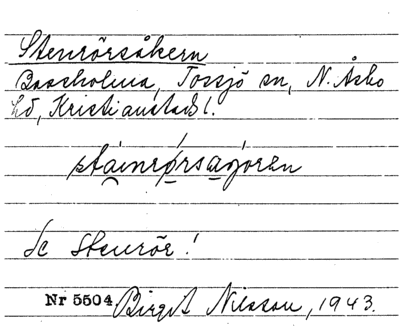 Stenrörsåkern
Bassholma, Tossjö sn, N. Åsbo
hd, Kristianstads l.
stainrørsagøren
Se Stenrör!
Nr 5504. Birgit Nilsson, 1943.